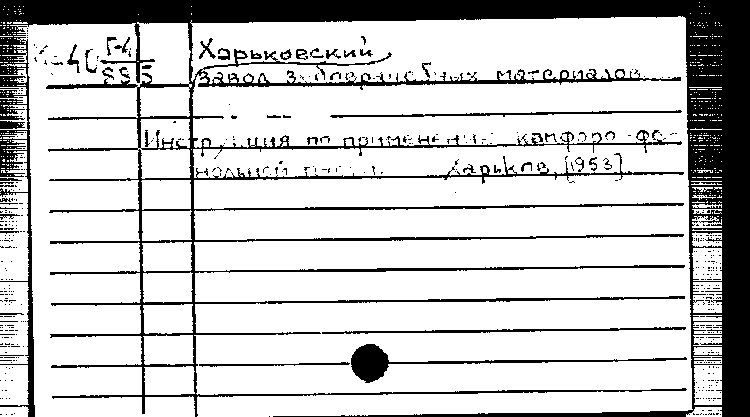 Харьковский
завод зубоврачебных материалов.
Инструкция по применению камфоро-фе-
нольной пасты. Харьков, [1953]